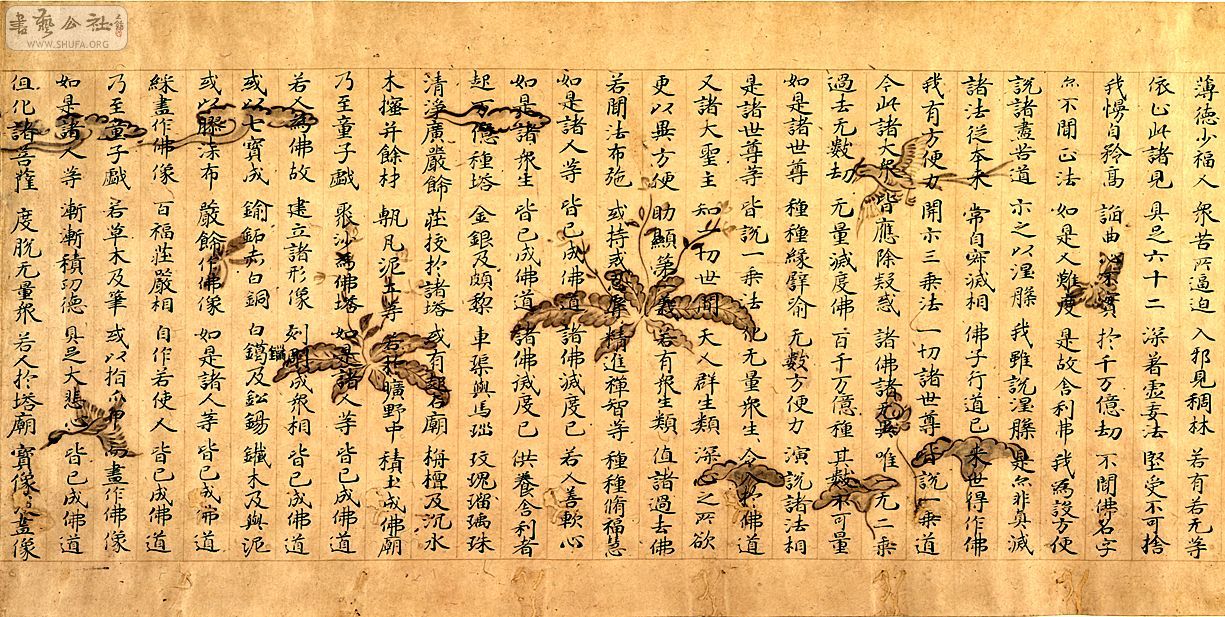 薄德少福人 衆苦所逼迫 入邪見稠林 若有若无等
依止此諸見 具足六十二 深著虛妄法 堅受不可捨
我慢自矜高 諂曲心不實 於千万億劫 不聞佛名字
亦不聞正法 如是人難度 是故舍利弗 我為設方便
說諸盡苦道 示之以涅槃 我雖說涅槃 是亦非真滅
諸法從本來 常自寂滅相 佛子行道已 來世得作佛
我有方便力 開示三乘法 一切諸世尊 皆說一乘道
今此諸大衆 皆應除疑惑 諸佛語无異 唯一无二乘
過去无數劫 无量滅度佛 百千万億種 其數不可量
如是諸世尊 種種緣譬喻 无數方便力 演說諸法相
是諸世尊等 皆說一乘法 化无量衆生 令入於佛道
又諸大聖主 知一切世間 天人群生類 深心之所欲
更以異方便 助顯第一義 若有衆生類 值諸過去佛
若聞法布施 或持戒忍辱 精進禪智等 種種脩福慧
如是諸人等 皆已成佛道 諸佛滅度已 若人善軟心
如是諸衆生 皆已成佛道 諸佛滅度已 供養舍利者
起万億種塔 金銀及頗黎 車渠與馬瑙 玫瑰瑠璃珠
清淨廣嚴飾 莊挍於諸塔 或有起石廟 栴檀及沉水
木櫁并餘材 塼瓦泥土等 若於曠野中 積土成佛廟
乃至童子戲 聚沙為佛塔 如是諸人等 皆已成佛道
若人為佛故 建立諸形像 刻彫成衆相 皆已成佛道
或以七寶成 鍮鉐赤白銅 白鑞及鉛錫 鐵木及與泥
或以膠漆布 嚴飾作佛像 如是諸人等 皆已成佛道
綵畫作佛像 百福莊嚴相 自作若使人 皆已成佛道
乃至童子戲 若草木及筆 或以指爪甲 而畫作佛像
如是諸人等 漸漸積功德 具足大悲心 皆已成佛道
但化諸菩薩 度脫无量衆 若人於塔廟 寶像及畫像
書藝公社
WWW.SHUFA.ORG